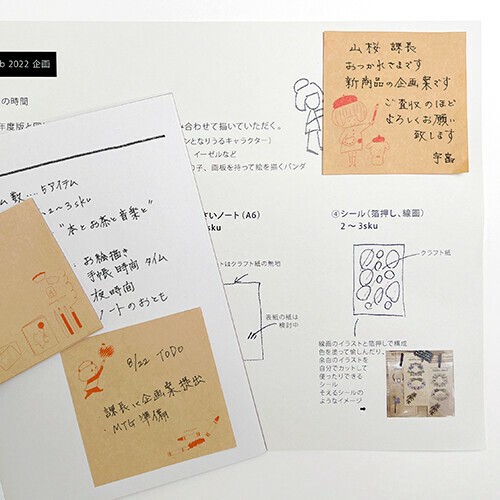 b 2022 企画
の時間
合わせて描いていただく。
ンとなりうるキャラクター）
イーゼルなど
の子、画板を持って絵を描くパンダ
山桜 課長
おつかれさまです
新商品の企画案です
ご査収のほど
よろしくお願い
致します
ム数....5アイテム
2〜3sku
"本とお茶と音楽と"
お絵描き
手帳時間 タイム
夜時間
ノートのおとも
さいノート（A6）
sku
トはクラフト紙の無地
表紙の紙は
検討中
④シール（箔押し、線画）
2〜3sku
クラフト紙
線画のイラストと箔押しで構成
色を塗って愉しんだり、
余白のイラストを
自分でカットして
使ったりできる
シール
そえるシールの
ようなイメージ
8/22 TODO
課長に企画案提出
MTG準備